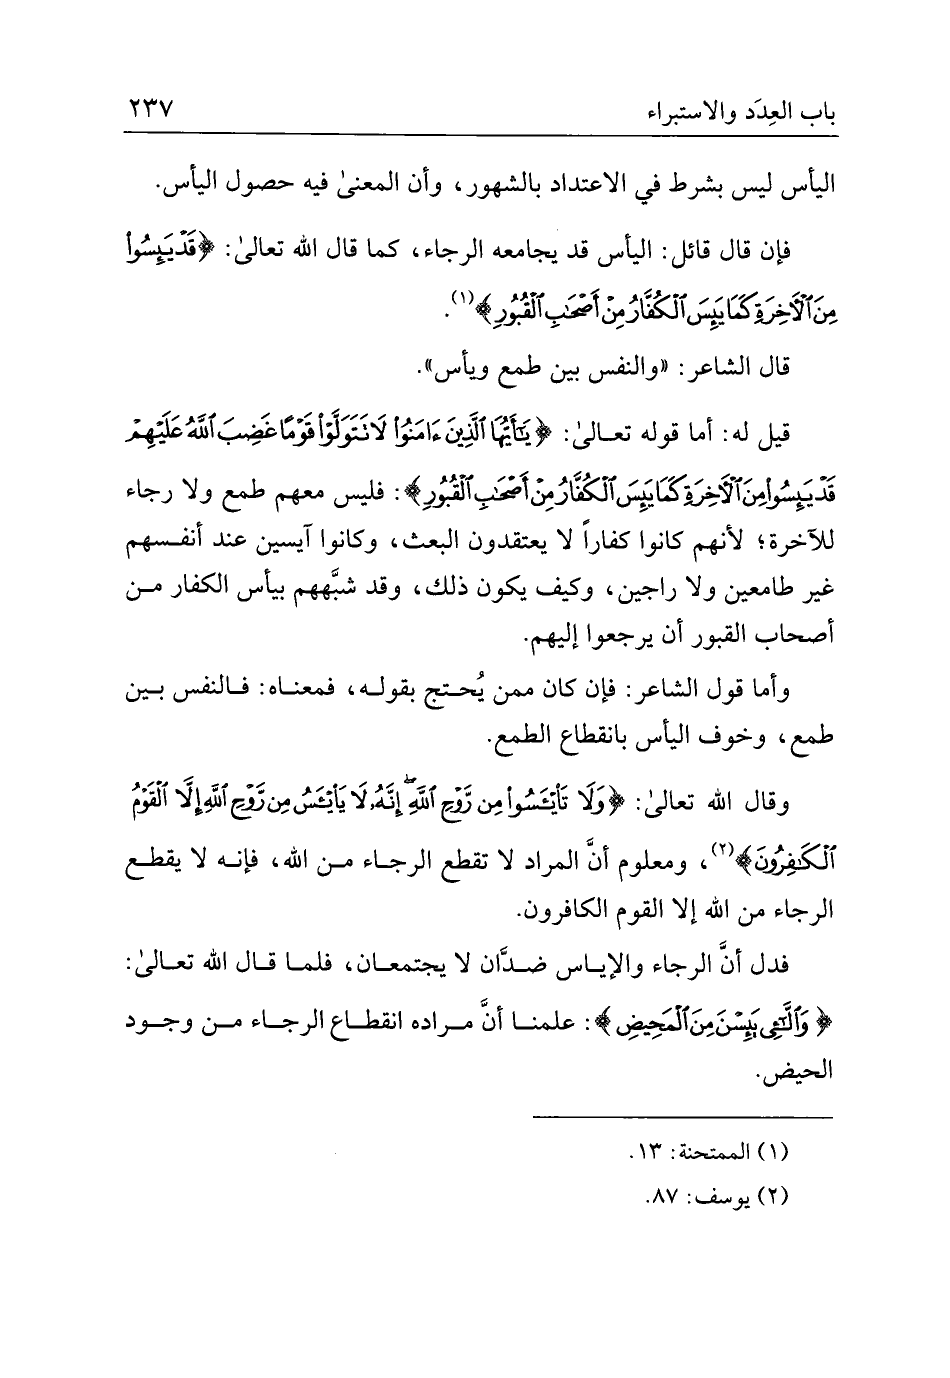 باب العِدَد والاستبراء ٢٣٧
اليأس ليس بشرط في الاعتداد بالشهور، وأن المعنىٰ فيه حصول اليأس.
فإن قال قائل: اليأس قد يجامعه الرجاء، كما قال الله تعالىٰ: ﴿قَدْ يَئِسُوا۟
مِنَ ٱلْأَخِرَةِ كَمَا يَئِسَ ٱلْكُفَّارُ مِنْ أَصْحَٰبِ ٱلْقُبُورِ﴾(١).
قال الشاعر: «والنفس بين طمع ويأس».
قيل له: أما قوله تعـالىٰ: ﴿يَٰٓأَيُّهَا ٱلَّذِينَ ءَامَنُوا۟ لَا تَتَوَلَّوْا۟ قَوْمًا غَضِبَ ٱللَّهُ عَلَيْهِمْ
قَدْ يَئِسُوا۟ مِنَ ٱلْأَخِرَةِ كَمَا يَئِسَ ٱلْكُفَّارُ مِنْ أَصْحَٰبِ ٱلْقُبُورِ﴾: فليس معهم طمع ولا رجاء
للآخرة؛ لأنهم كانوا كفاراً لا يعتقدون البعث، وكانوا آيسين عند أنفـسهم
غير طامعين ولا راجين، وكيف يكون ذلك، وقد شبَّههم بيأس الكفار مـن
أصحاب القبور أن يرجعوا إليهم.
وأما قول الشاعر: فإن كان ممن يُحـتج بقولـه، فمعنـاه: فـالنفس بـين
طمع، وخوف اليأس بانقطاع الطمع.
وقال الله تعالىٰ: ﴿وَلَا تَا۟يْـَٔسُوا۟ مِن رَّوْحِ ٱللَّهِ ۖ إِنَّهُۥ لَا يَا۟يْـَٔسُ مِن رَّوْحِ ٱللَّهِ إِلَّا ٱلْقَوْمُ
ٱلْكَٰفِرُونَ﴾(٢)، ومعلوم أنَّ المراد لا تقطع الرجـاء مـن الله، فإنـه لا يقطـع
الرجاء من الله إلا القوم الكافرون.
فدل أنَّ الرجاء والإيـاس ضـدَّان لا يجتمعـان، فلمـا قـال الله تعـالىٰ:
﴿وَٱلَّٰٓـِٔى يَئِسْنَ مِنَ ٱلْمَحِيضِ﴾: علمنـا أنَّ مـراده انقطـاع الرجـاء مـن وجـود
الحيض.
(١) الممتحنة: ١٣.
(٢) يوسف: ٨٧.